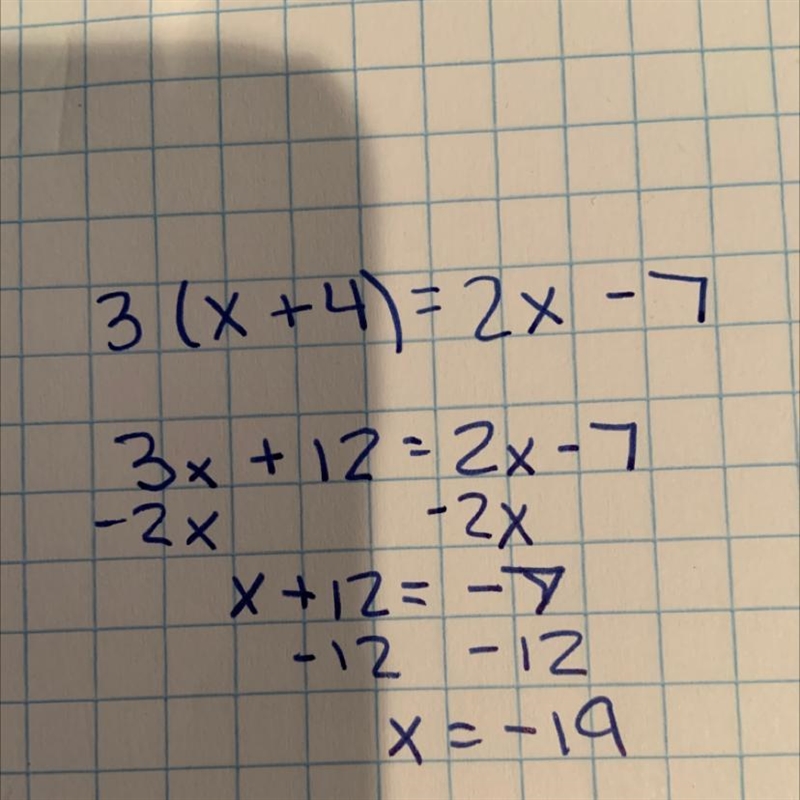 3(x+4)=2x-7
3x+12=2x-7
-2x -2x
x+12=-7
-12 -12
x=-19